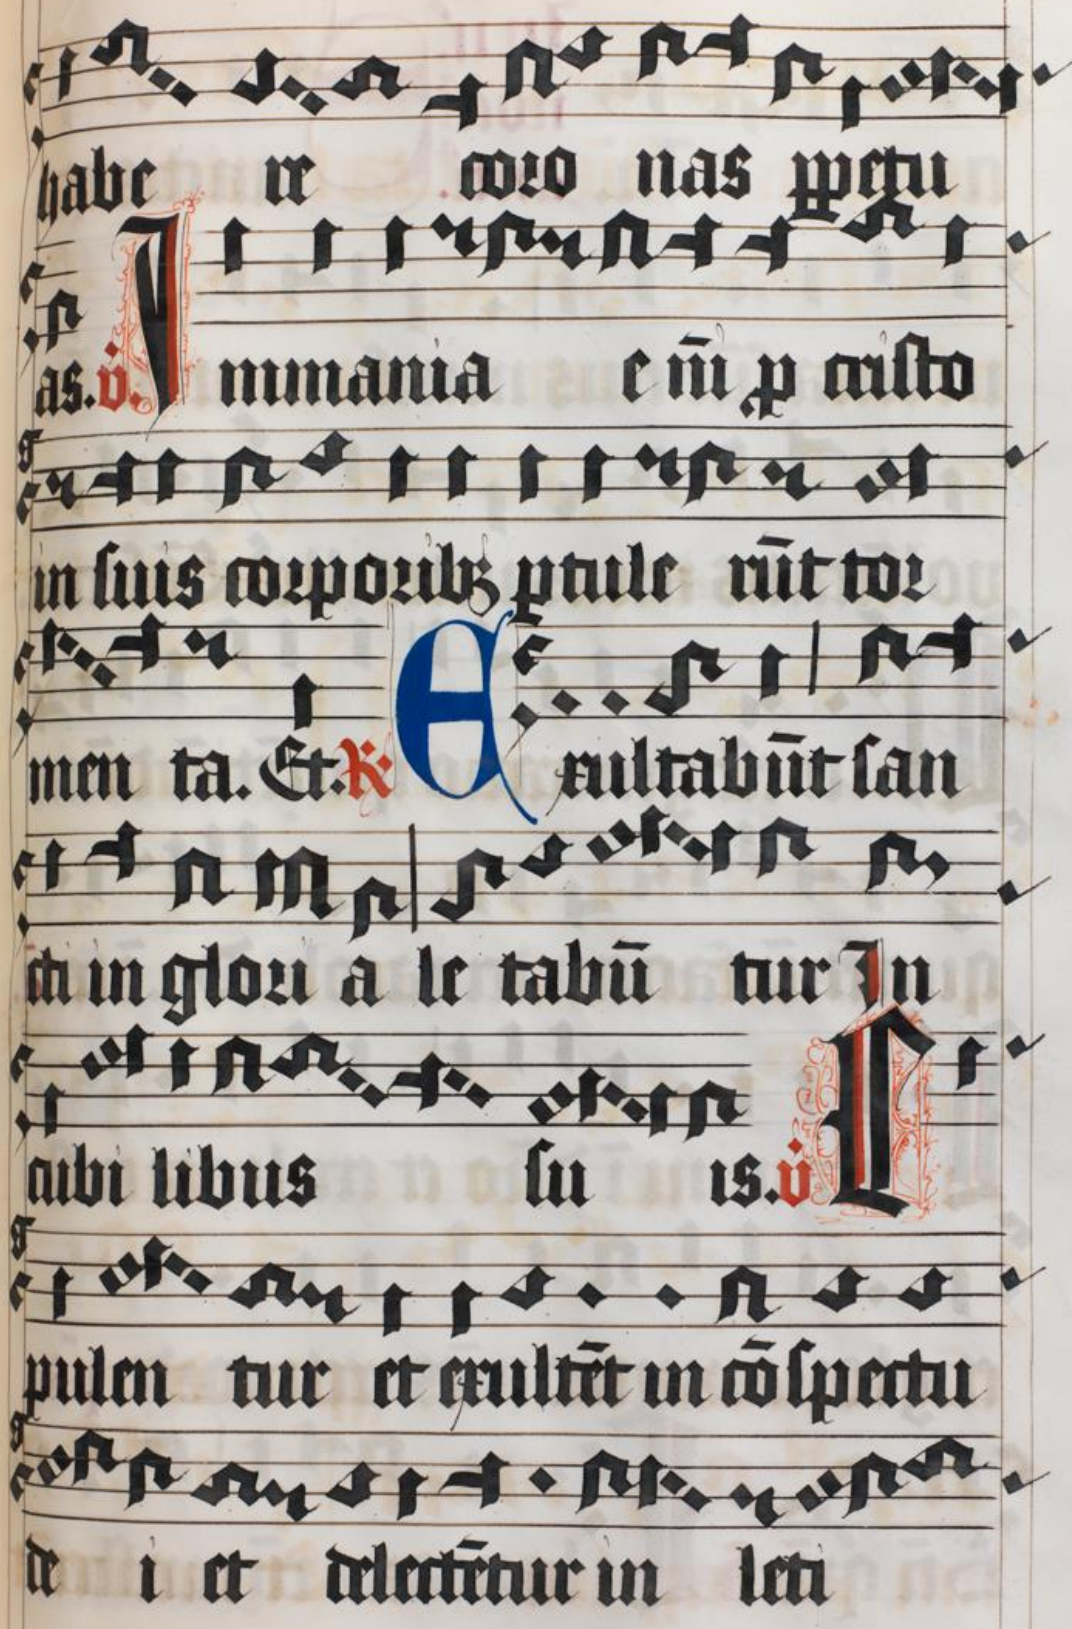 habe re coro nas ꝑpetu
as. v̇. Immania em̄ ꝓ cristo
in suis corporibꝫ ꝑtule rūt tor
men ta. Et. R: Exultabūt san
cti in glori a le tabū tur In
cubi libus su is. v̇ E
pulen tur et exultēt in cōspectu
de i et delectētur in leti